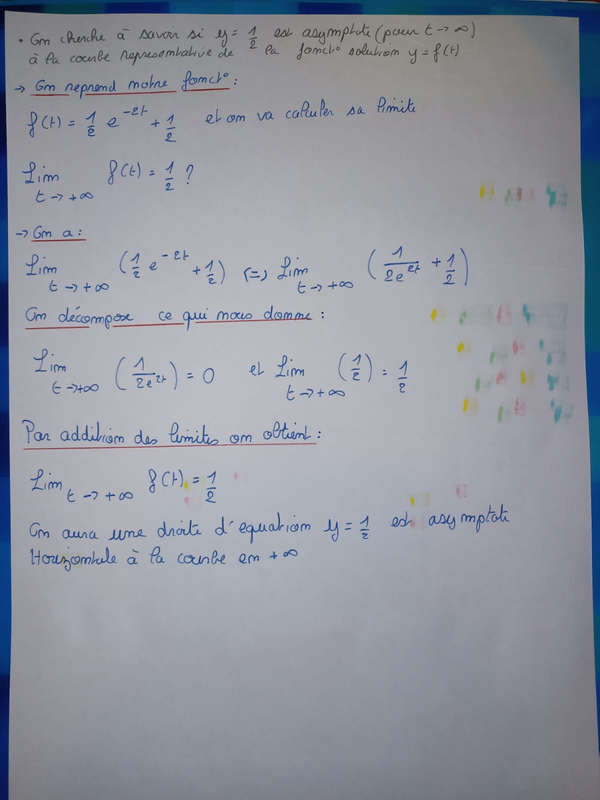 • On cherche à savoir si y = 1/2 est asymptote (pour t → ∞)
à la courbe representative de la fonct° solution y = f(t)
→ On reprend notre fonct° :
f(t) = 1/2 e^-2t + 1/2 et on va calculer sa limite
Lim t → +∞ f(t) = 1/2 ?
→ On a :
Lim t → +∞ (1/2 e^-2t + 1/2) (=) Lim t → +∞ (1/2e^2t + 1/2)
On décompose ce qui nous donne :
Lim t → +∞ (1/2e^2t) = 0 et Lim t → +∞ (1/2) = 1/2
Par addition des limites on obtient :
Lim t → +∞ f(t) = 1/2
On aura une droite d'equation y = 1/2 est asymptote
Horizontale à la courbe en +∞